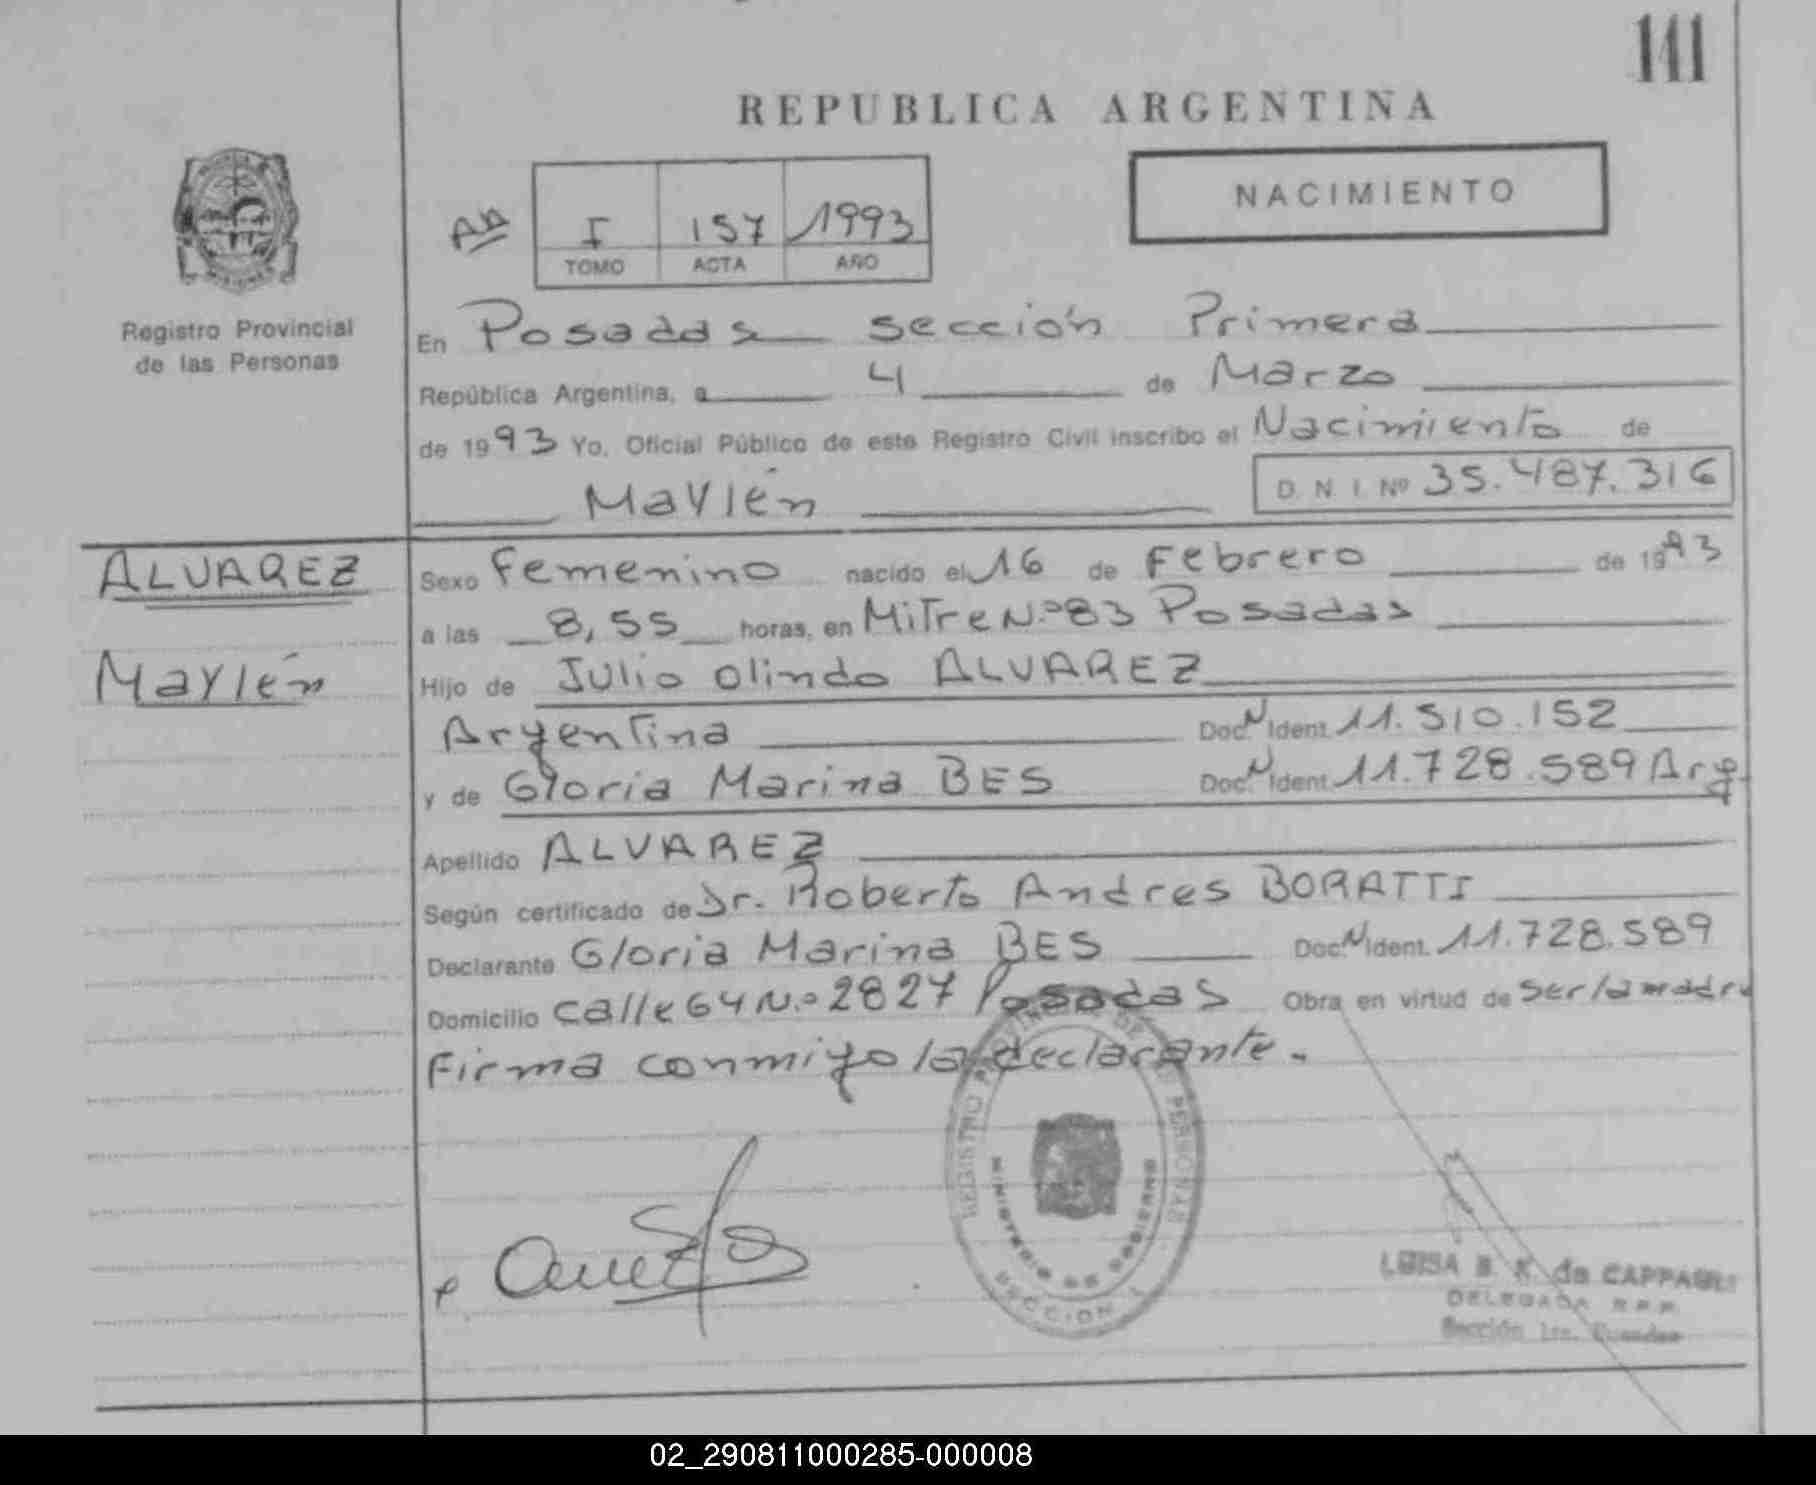 141
REPUBLICA ARGENTINA
NACIMIENTO
I 157 1993
TOMO ACTA AÑO
Registro Provincial
de las Personas
En Posadas sección Primera
República Argentina, a 4 de Marzo
de 1993 Yo, Oficial Público de este Registro Civil inscribo el Nacimiento de
Maylén D. N. I. Nº 35.487.316
ALVAREZ
Maylén
Sexo Femenino nacido el 16 de Febrero de 1993
a las 8,55 horas, en Mitre N.º 83 Posadas
Hijo de Julio Olindo ALVAREZ
Argentina Doc. N Ident. 11.510.152
y de Gloria Marina BES Doc. N Ident. 11.728.589 Arg.
Apellido ALVAREZ
Según certificado de Dr. Roberto Andres BORATTI
Declarante Gloria Marina BES Doc. N Ident. 11.728.589
Domicilio calle 64 N.º 2827 Posadas Obra en virtud de ser la madre
Firma conmigo la declarante.
REGISTRO PROVINCIAL DE LAS PERSONAS
MINISTERIO DE GOBIERNO
SECCION 1
LUISA B. K. de CAPPAGLI
DELEGADA R.P.P.
Sección 1ra. Posadas
02_290811000285-000008